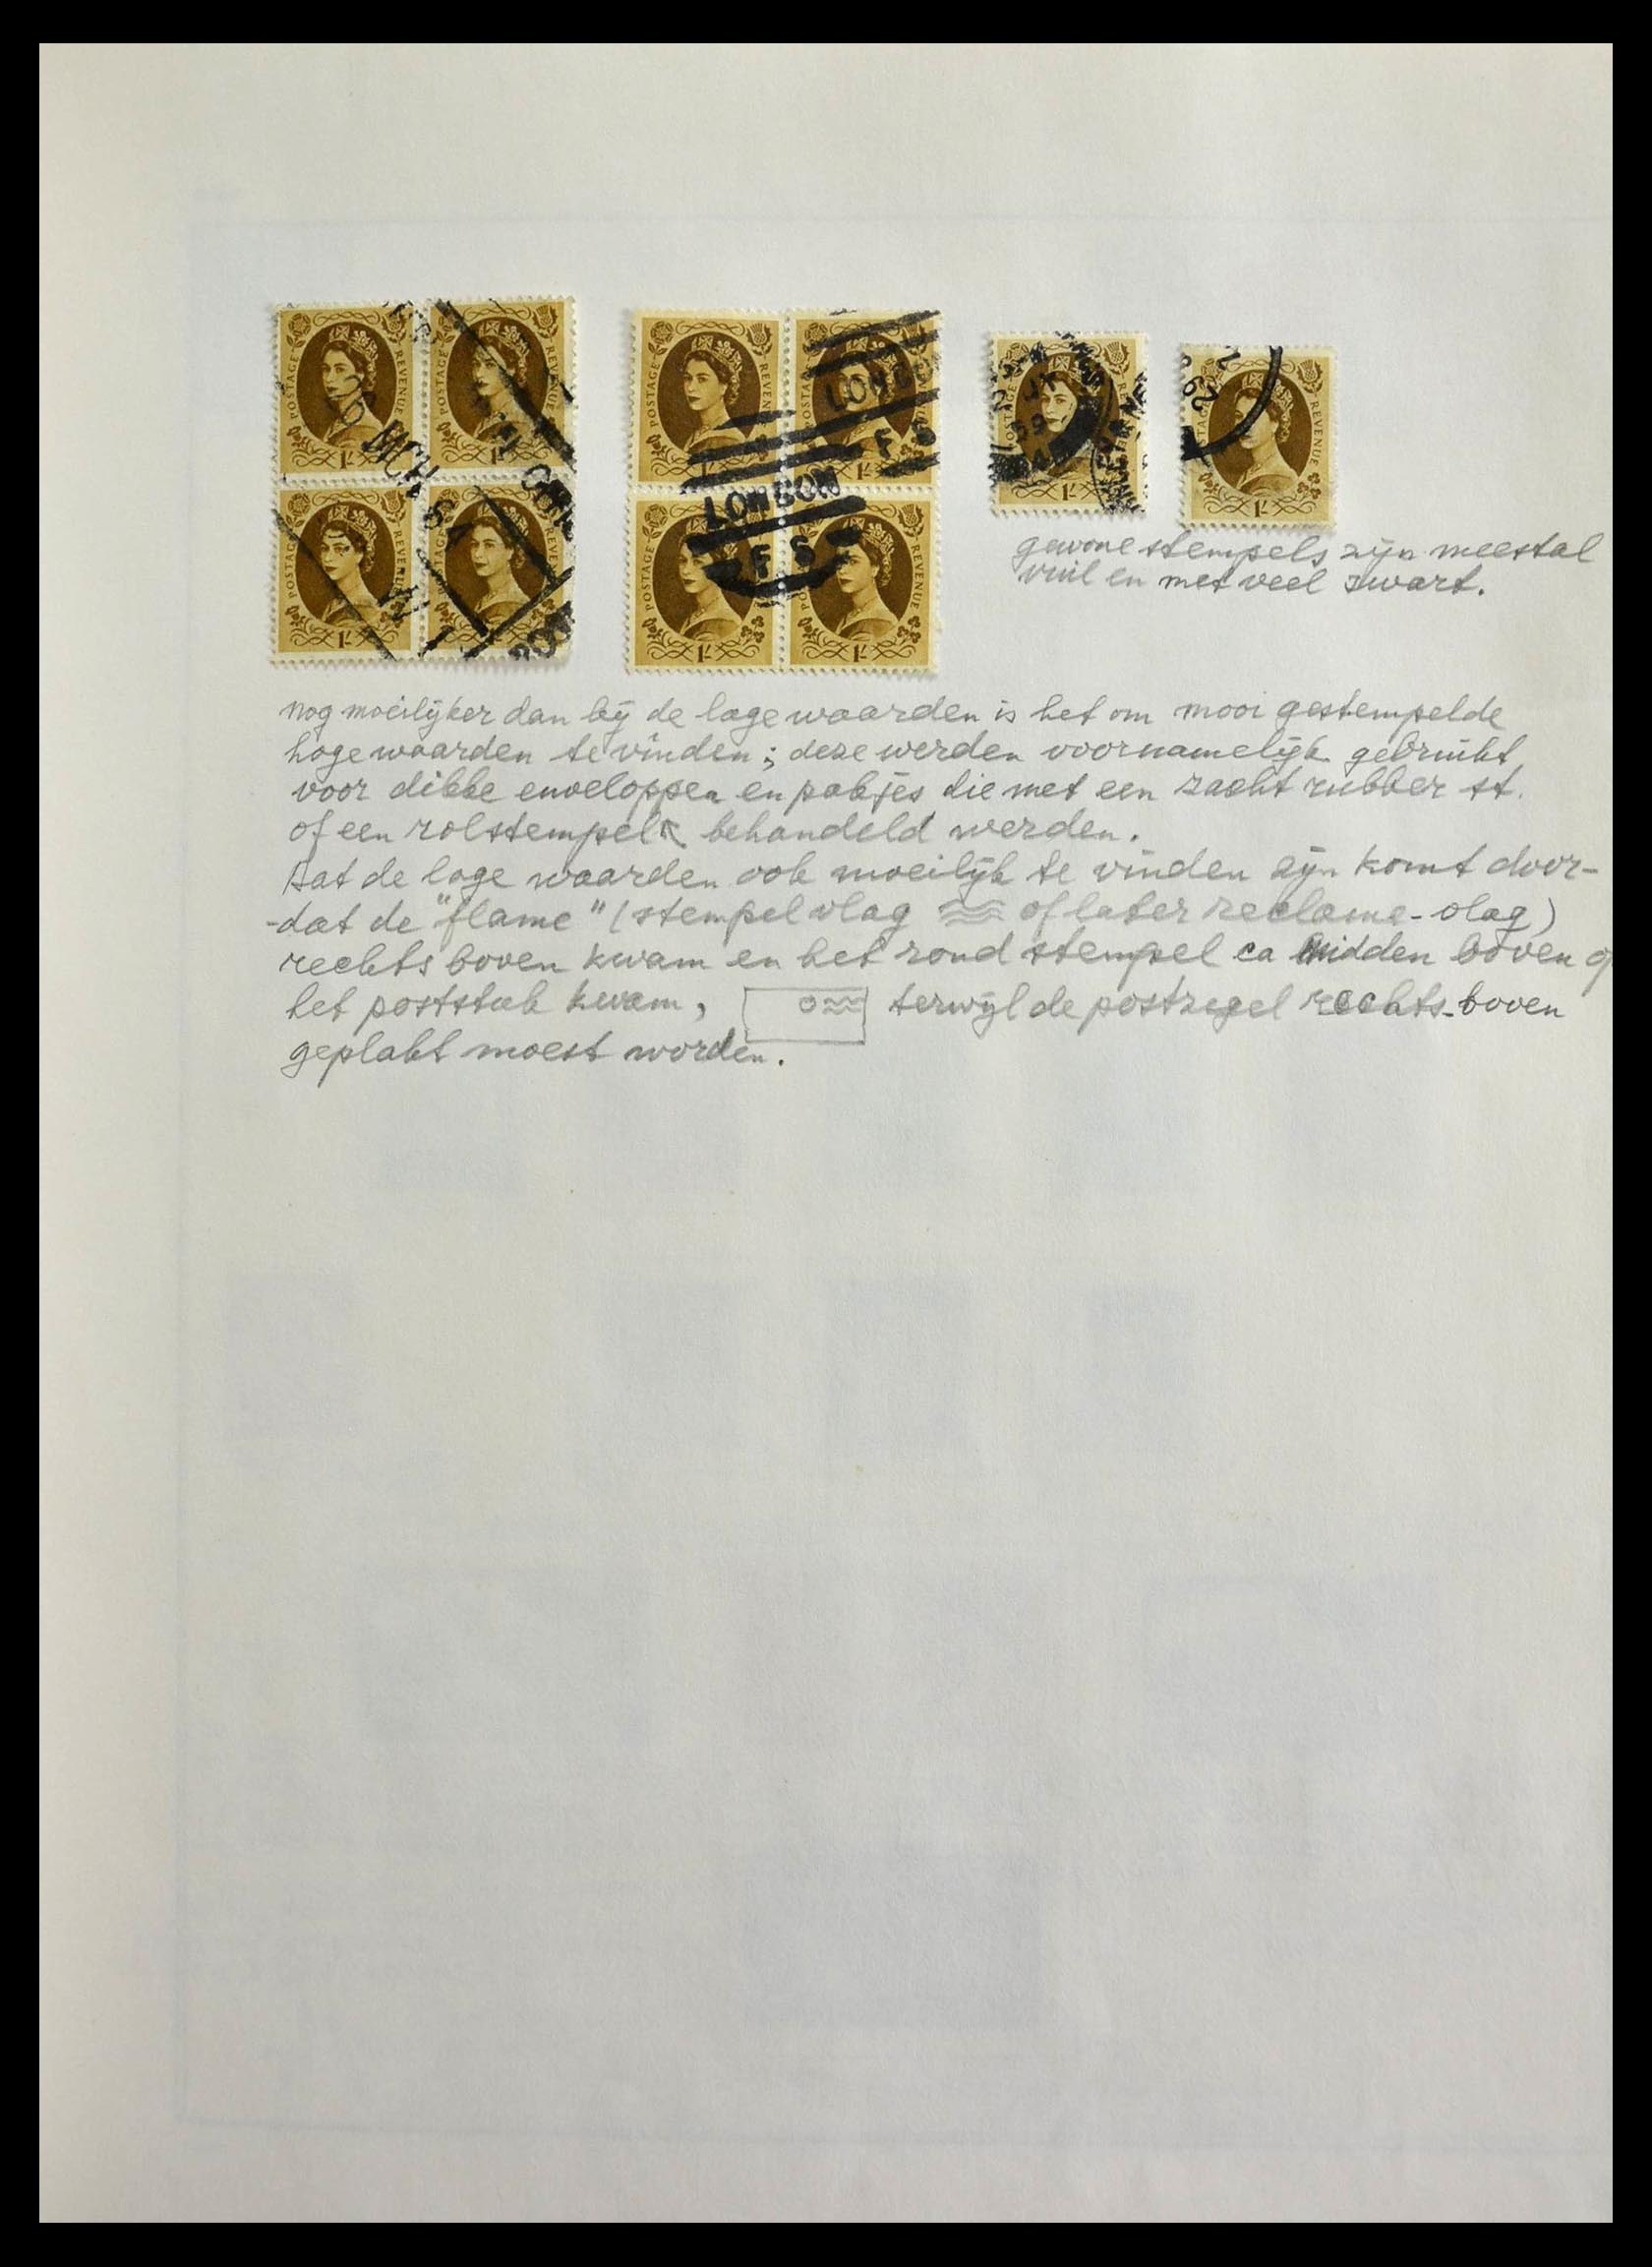 POSTAGE REVENUE 1/-
POSTAGE REVENUE 1/-
POSTAGE REVENUE 1/-
POSTAGE REVENUE 1/-
POSTAGE REVENUE 1/-
POSTAGE REVENUE 1/-
POSTAGE REVENUE 1/-
POSTAGE REVENUE 1/-
LONDON
F S
LONDON
F S
POSTAGE REVENUE 1/-
POSTAGE REVENUE 1/-
gewone stempels zijn meestal
vuil en met veel zwart.
nog moeilijker dan bij de lage waarden is het om mooi gestempelde
hoge waarden te vinden; deze werden voornamelijk gebruikt
voor dikke enveloppen en pakjes die met een zacht rubber st.
of een rolstempel behandeld werden.
Dat de lage waarden ook moeilijk te vinden zijn komt door-
-dat de "flame" (stempelvlag of later reclame-vlag)
rechts boven kwam en het rond stempel ca midden boven op
het poststuk kwam, terwijl de postzegel rechts-boven
geplakt moest worden.